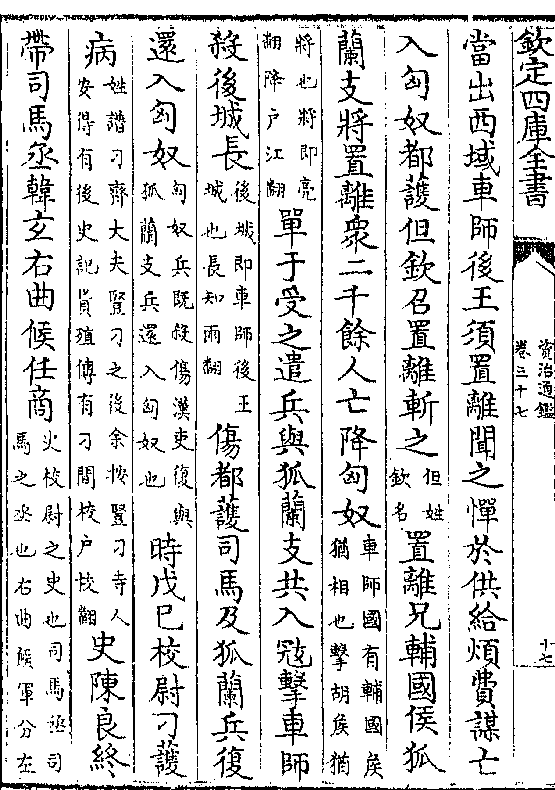 欽定四庫全書
資治通鑑
卷三十七
十七
當出西域車師後王須置離聞之憚於供給煩費謀亡
入匈奴都䕶但欽召置離斬之但姓欽名置離兄輔國侯狐
蘭支將置離衆二千餘人亡降匈奴車師國有輔國侯猶相也擊胡侯猶
將也將即亮翻降户江翻單于受之遣兵與狐蘭支共入冦擊車師
殺後城長後城即車師後王城也長知雨翻傷都䕶司馬及狐蘭兵復
還入匈奴匈奴兵既殺傷漢吏復與狐蘭支兵還入匈奴也時戊巳校尉刁䕶
病姓譜刁齊大夫豎刁之後余按豎刁寺人安得有後史記貨殖傳有刁間校户校翻史陳良終
帶司馬丞韓玄右曲候任商火校尉之史也司馬丞司馬之丞也右曲候軍分左